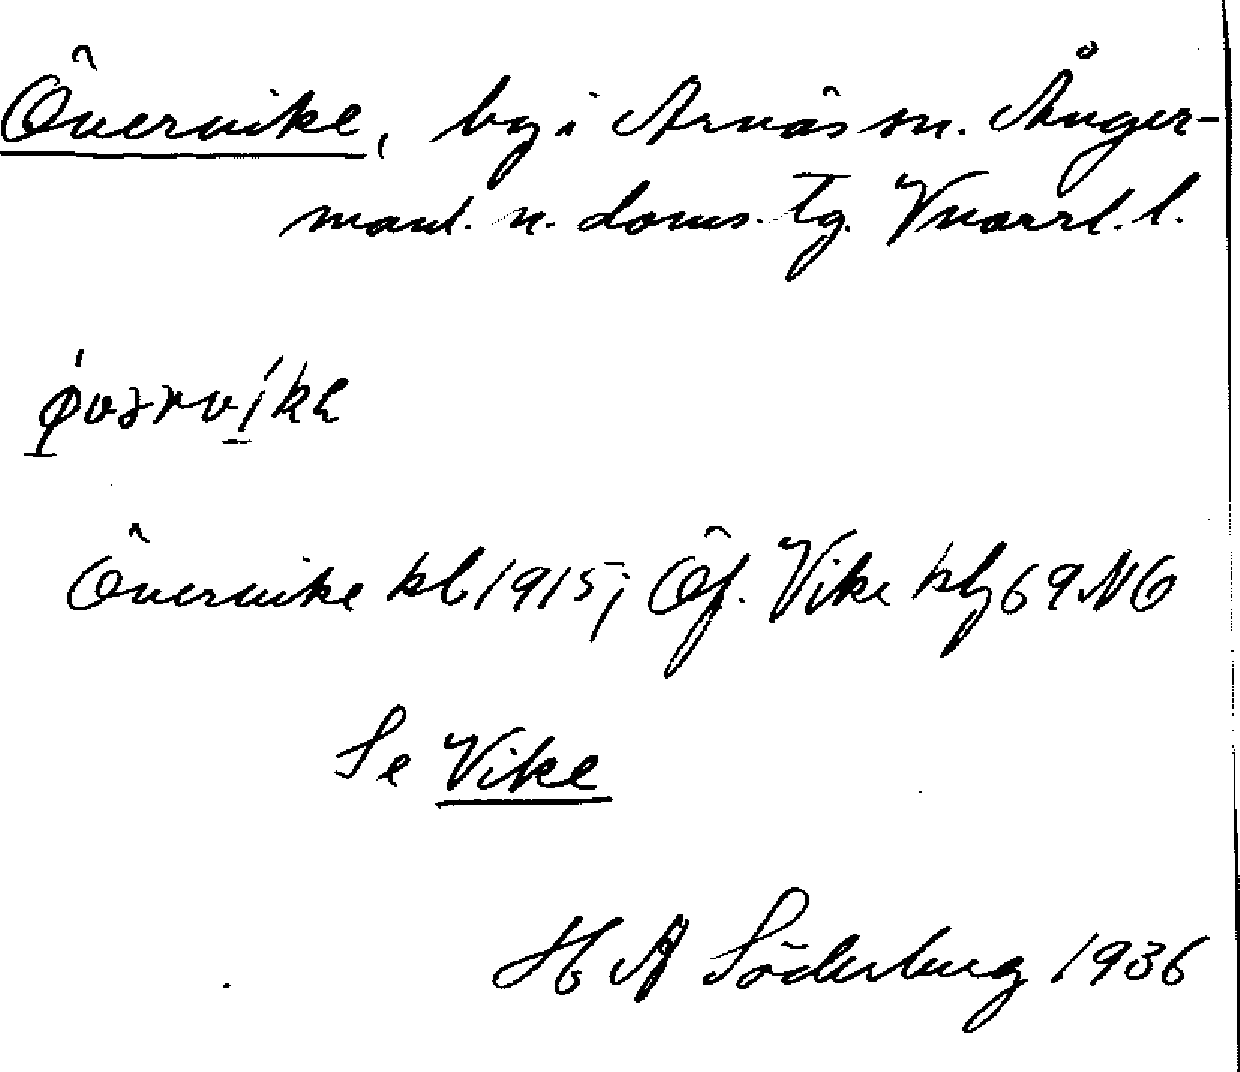 Övervike, by i Arnäs sn. Ånger-
manl. n. doms. tg. Vnorrl. l.
Övervike kb 1915; Öf. Vike klj 69 NO
Se Vike
H A Söderberg 1936